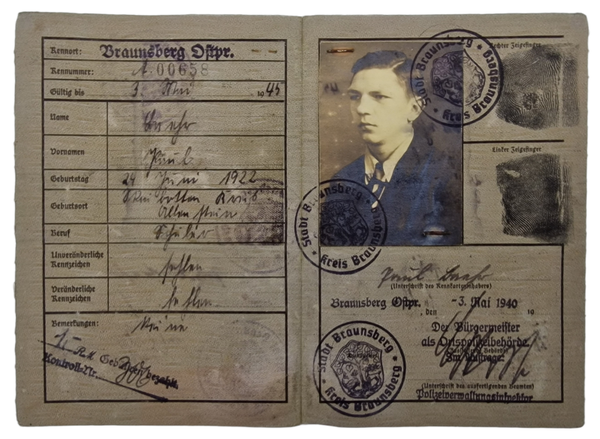 Kennort: Braunsberg Ostpr.
Kennummer: A 00658
Gültig bis 3. Mai 1945
Name
Vornamen Paul
Geburtstag 24 Juni 1922
Geburtsort Kreis
Allenstein
Beruf Schüler
Unveränderliche Kennzeichen fehlen
Veränderliche Kennzeichen fehlen
Bemerkungen: Keine
Kontroll-Nr.
Stadt Braunsberg * Kreis Braunsberg
Rechter Zeigefinger
Stadt Braunsberg * Kreis Braunsberg
Linker Zeigefinger
Paul
(Unterschrift des Kennkarteninhabers)
Braunsberg Ostpr., den -3. Mai 1940 19
Der Bürgermeister
als Ortspolizeibehörde
Im Auftrage:
Stadt Braunsberg * Kreis Braunsberg
(Unterschrift des ausfertigenden Beamten)